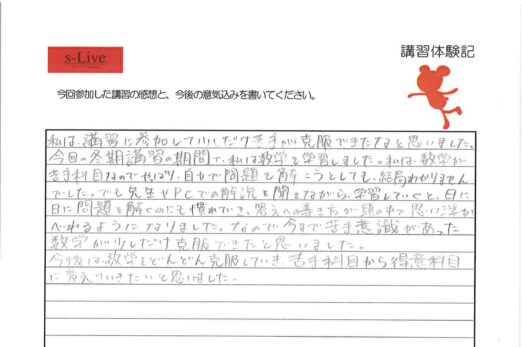 s-Live
講習体験記
今回参加した講習の感想と、今後の意気込みを書いてください。
私は、講習に参加して少しだけ苦手が克服できたなと思いました。
今回の冬期講習の期間で、私は数学を学習しました。私は、数学が
苦手科目なのでやはり、自力で問題を解こうとしても、結局わかりません
でした。でも先生やPCでの解説を聞きながら、学習していくと、日に
日に問題を解くのにも慣れていき、答えへの導き方が頭の中で思い浮か
べれるようになりました。なので今まで苦手意識があった
数学が少しだけ克服できたと思いました。
今後は、数学をどんどん克服していき、苦手科目から得意科目
に変えていきたいと思いました。